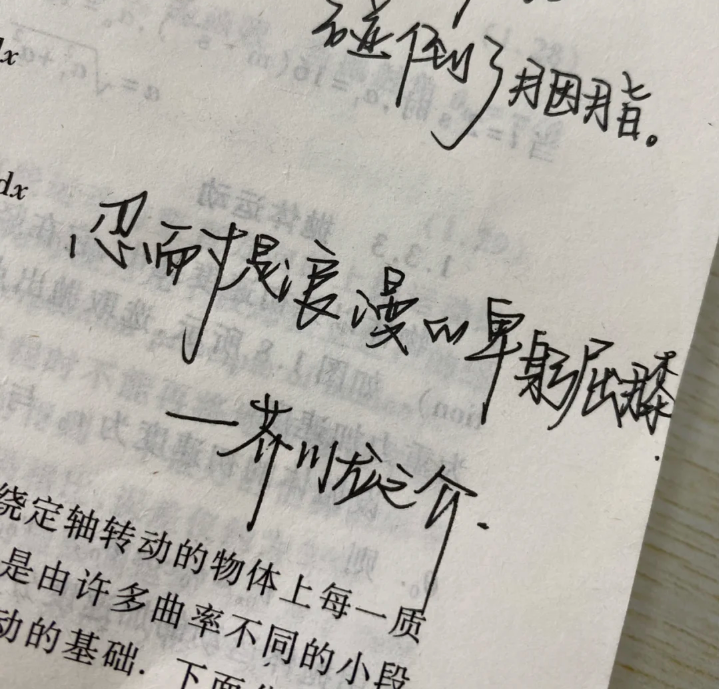 碰倒了胭脂。
dx
dx
忍耐是浪漫的卑躬屈膝.
—芥川龙之介.
绕定轴转动的物体上每一质
是由许多曲率不同的小段
动的基础. 下面